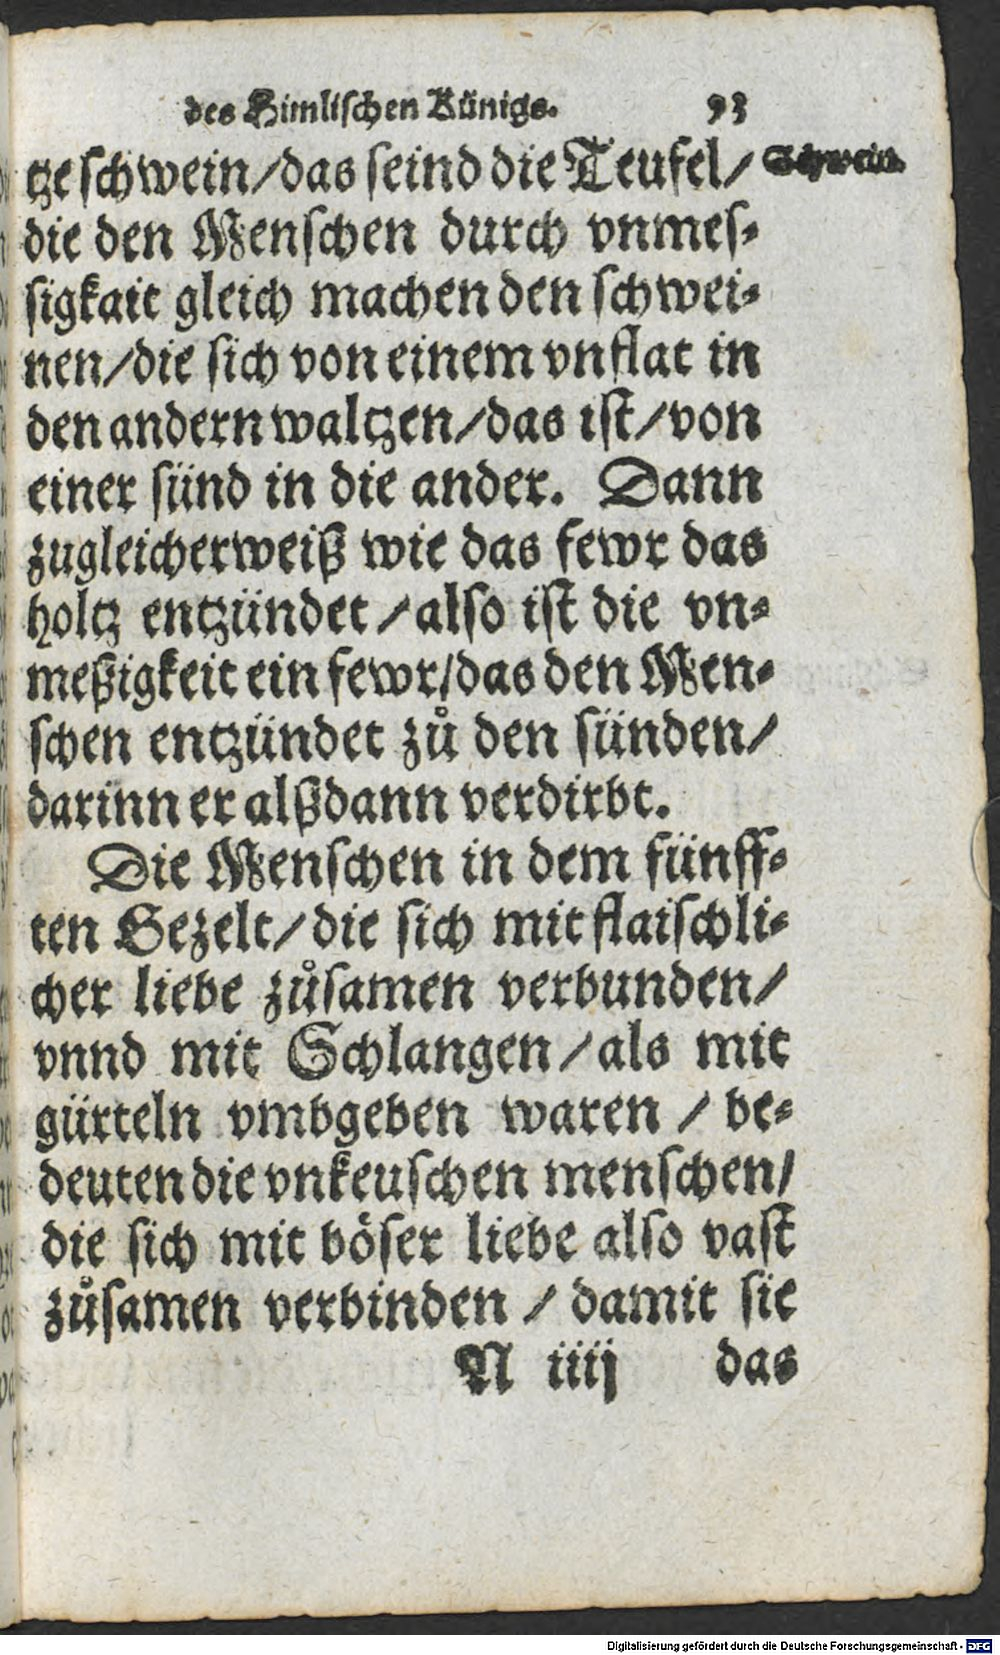 des Himlischen Künigs. 93
tze schwein/das seind die Teufel/ Schwein.
die den Menschen durch vnmes⸗
sigkait gleich machen den schwei⸗
nen/die sich von einem vnflat in
den andern waltzen/das ist/von
einer sünd in die ander. Dann
zugleicherweiß wie das fewr das
holtz entzündet/also ist die vn⸗
meßigkeit ein fewr/das den Men⸗
schen entzündet zů den sünden/
darinn er alßdann verdirbt.
Die Menschen in dem fünff⸗
ten Gezelt/die sich mit flaischli⸗
cher liebe zůsamen verbunden/
vnnd mit Schlangen/als mit
gürteln vmbgeben waren/be⸗
deuten die vnkeuschen menschen/
die sich mit böser liebe also vast
zůsamen verbinden/damit sie
N iiij das
Digitalisierung gefördert durch die Deutsche Forschungsgemeinschaft - DFG